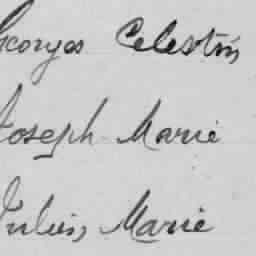 Georges Celestin
Joseph Marie
Julien, Marie